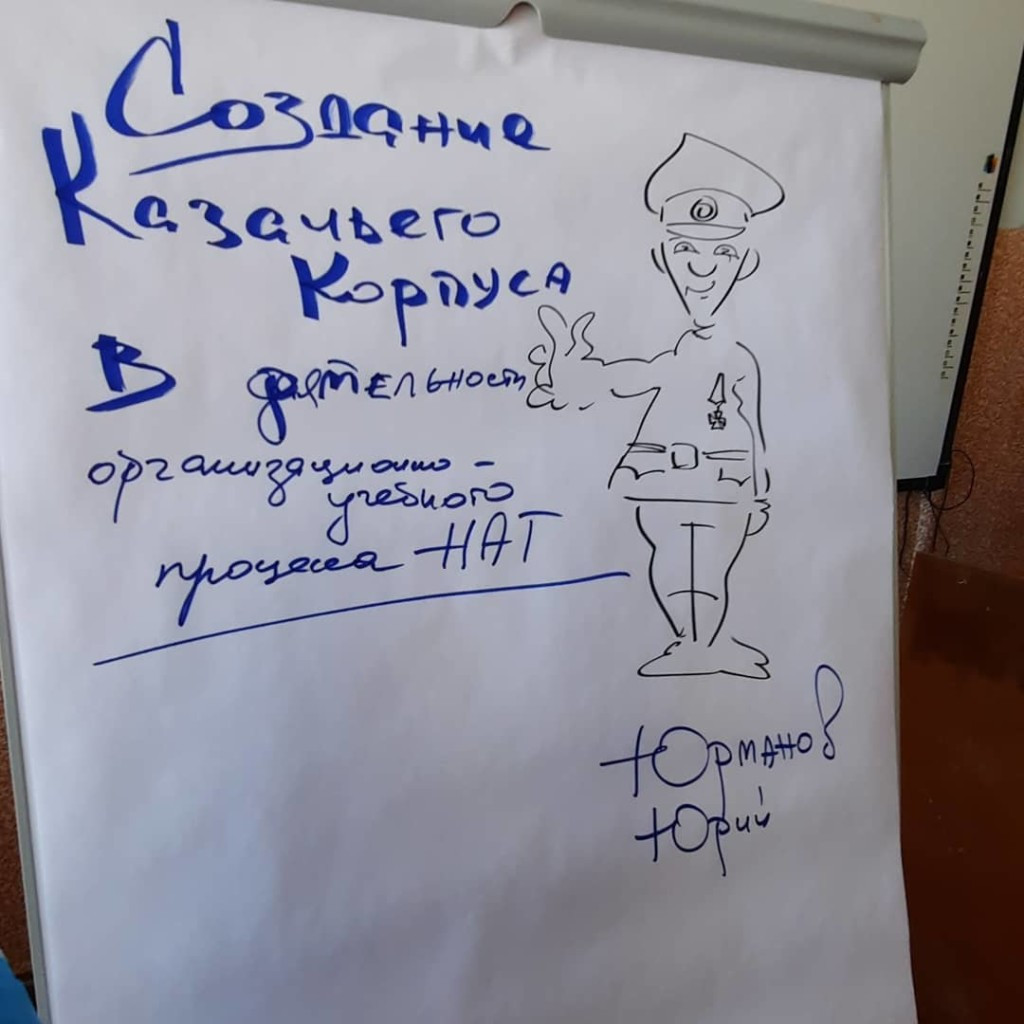 Создание
Казачьего
Корпуса
В деятельности
организационно-
учебного
процесса НАТ
Юрманов
Юрий